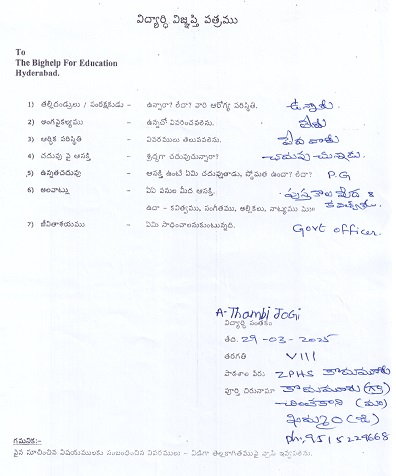 విద్యార్థి విజ్ఞప్తి పత్రము
To
The Bighelp For Education
Hyderabad.
1) తల్లిదండ్రులు / సంరక్షకుడు - ఉన్నారా? లేదా? వారి ఆరోగ్య పరిస్థితి. ఉన్నారు.
2) అంగవైకల్యము - ఉన్నచో వివరించవలెను.
3) ఆర్థిక పరిస్థితి - వివరములు తెలుపవలెను.
4) చదువు పై ఆసక్తి - శ్రద్ధగా చదువుచున్నారా?
5) ఉన్నతచదువు - ఆసక్తి ఉంటే ఏమి చదువుతాడు, స్తోమత ఉందా? లేదా? P.G
6) అలవాట్లు - ఏఏ పనుల మీద ఆసక్తి. పుస్తకాల మీద &
ఉదా - కవిత్వము, సంగీతము, అల్లికలు, నాట్యము ము॥
7) జీవితాశయము - ఏమి సాధించాలనుకుంటున్నది. Govt officer.
A-Thambi JOGi
విద్యార్థి సంతకం
తేది. 29-03-2025
తరగతి VIII
పాఠశాల పేరు ZPHS కొదుమూరు
పూర్తి చిరునామా కొదుమూరు (గ్రా)
చింతకాని (మం)
ఖమ్మం (జి)
ph, 9515229668
గమనిక:-
పైన సూచించిన విషయములకు సంబంధించిన వివరములు - విడిగా తెల్లకాగితముపై వ్రాసి ఇవ్వవలెను.